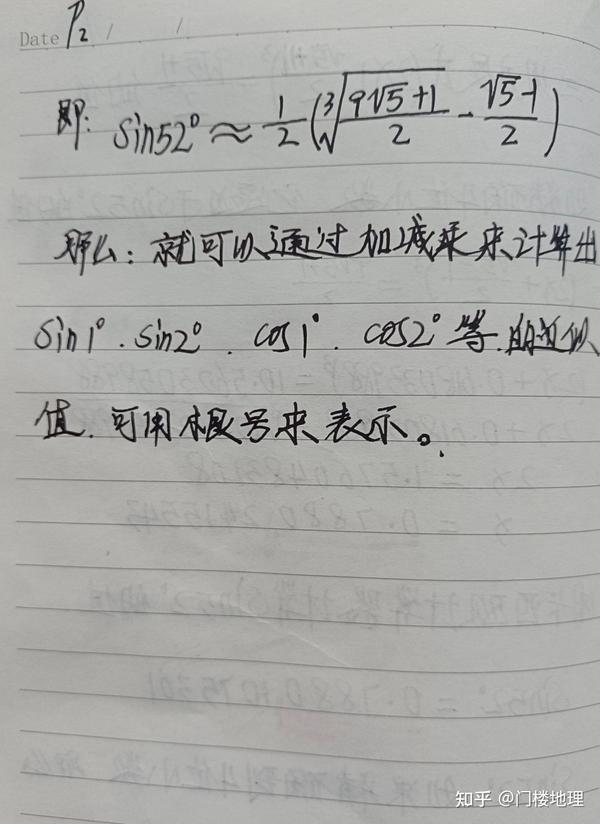 Date P2 / /
即: Sin52° ≈ 1/2 (∛((9√5+1)/2) - (√5-1)/2)
那么: 就可以通过加减乘来计算出
Sin1°. Sin2°. cos1°. cos2°等.的近似
值.可用根号来表示。
知乎 @门楼地理